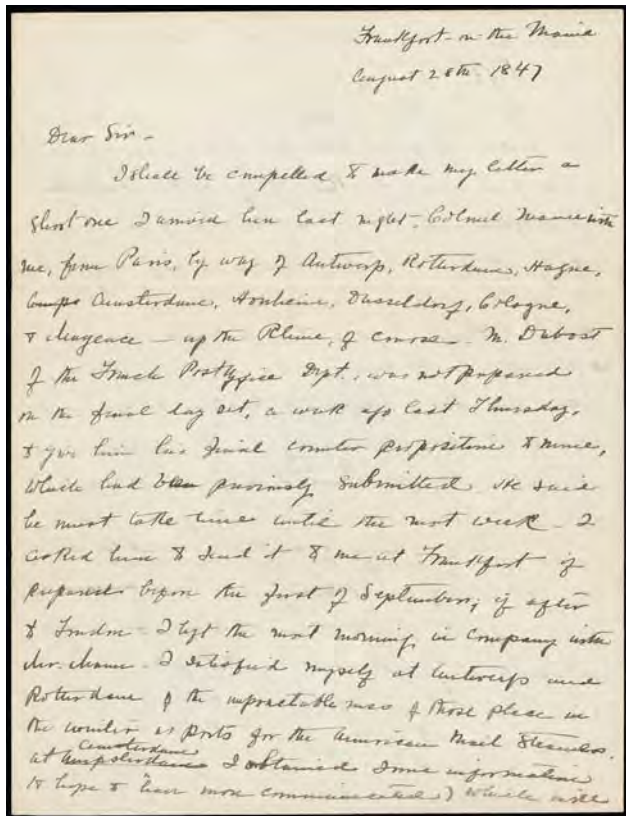 Frankfort-on the Maine
August 28th. 1847
Dear Sir-
I shall be compelled to make my letter a
short one I arrived here last night, Colonel Mann with
me, from Paris, by way of Antwerp, Rotterdam, Hague,
Amsterdam, Arnheim, Dusseldorf, Cologne,
& Mayence - up the Rhine, of course. M. Dubost
of the French Post Office Dept., was not prepared
on the final day set, a week ago last Thursday,
to give him his final counter proposition to mine,
which had been previously submitted. He said
he must take time until the next week - I
asked him to send it to me at Frankfort if
prepared before the first of September; if after
to London - I left the next morning, in company with
Mr. Mann - I satisfied myself at Antwerp and
Rotterdam of the of those place in
the winter as ports for the American Mail Steamers.
at Amsterdam I obtained some information
to hope to have more communicated) which will